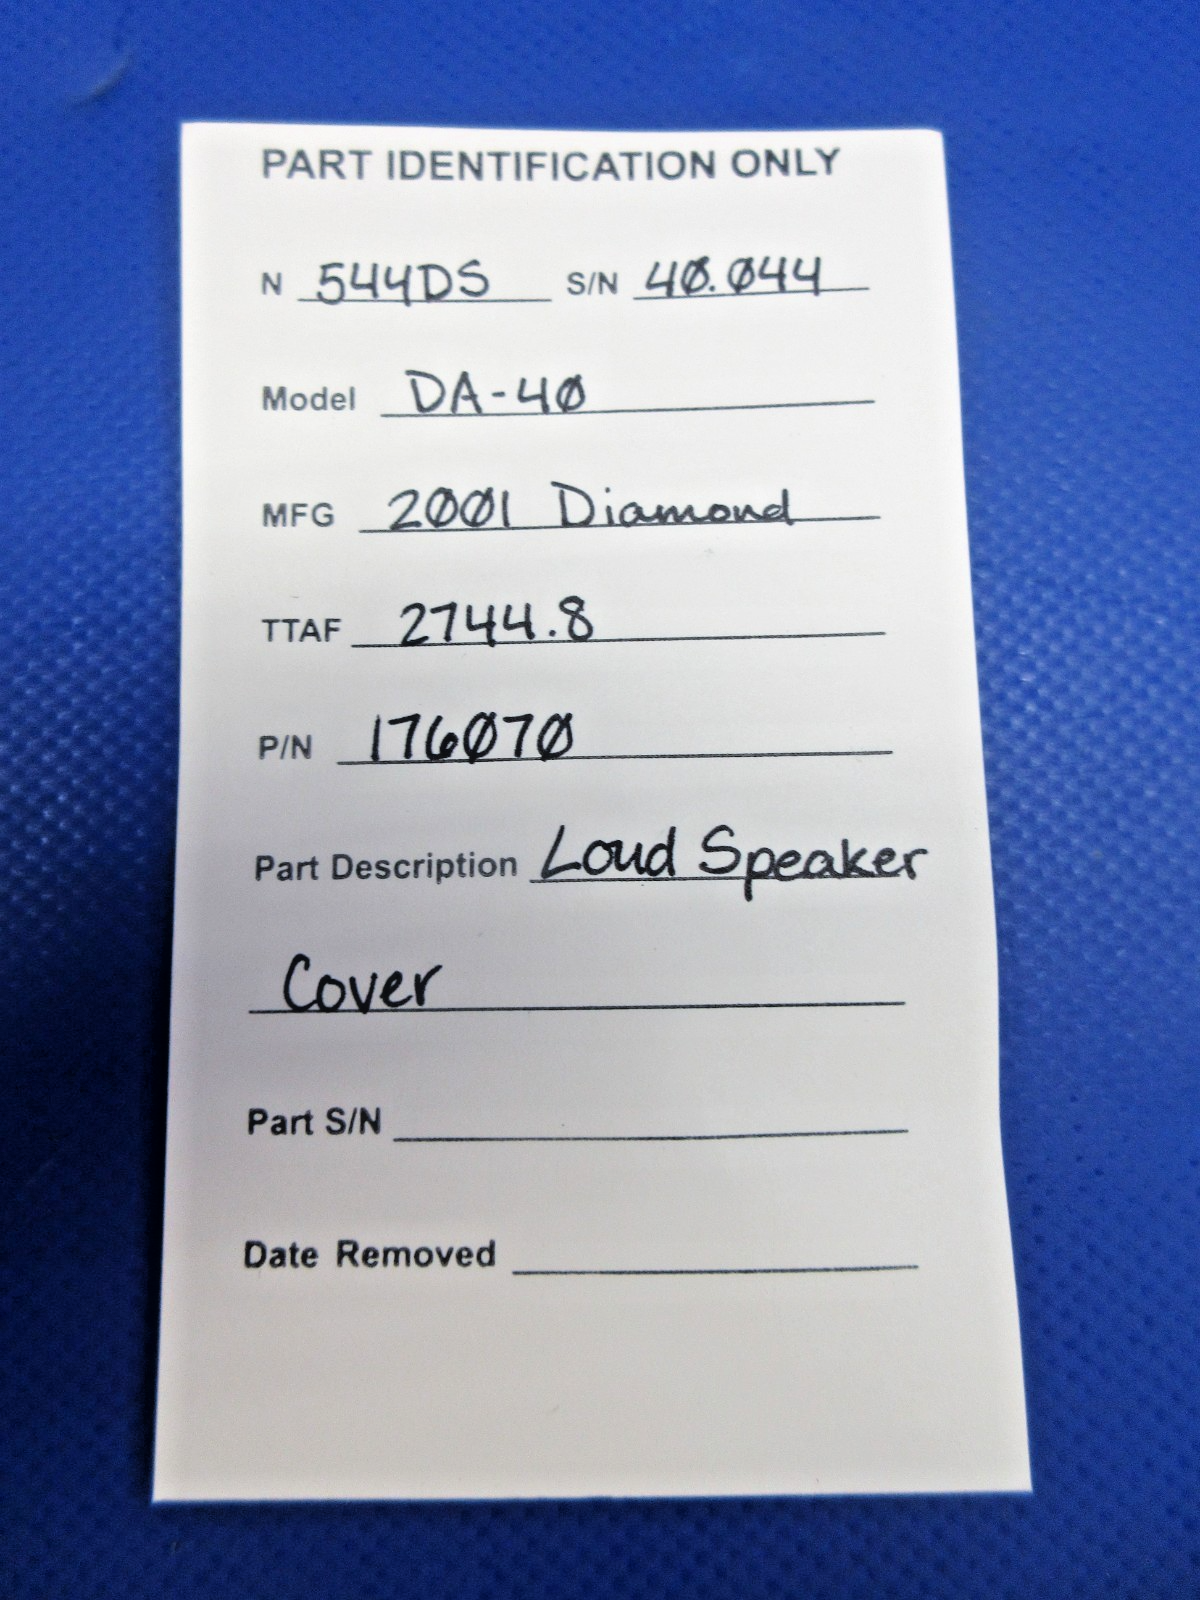 PART IDENTIFICATION ONLY
N 544DS S/N 40.044
Model DA-40
MFG 2001 Diamond
TTAF 2744.8
P/N 176070
Part Description Loud Speaker
Cover
Part S/N
Date Removed